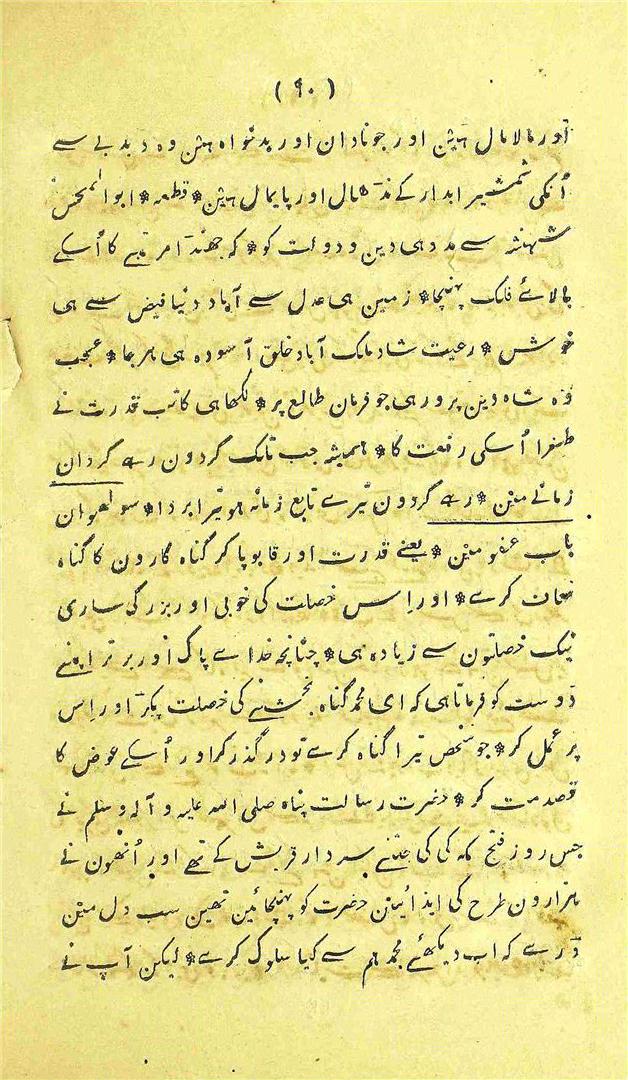 ( ۹۰ )
اور مالامال ہین اور جو نادان اور بدخواہ ہین وہ دبدبے سے
اُنکی شمشیر ابدار کے پامال ہین * قطعہ * ابو المحسن
شہنشہ سے مدد ہی دین و دولت کو * کہ جھنڈا مرتبے کا اُسکے
بالاے فلک پہنچا * زمین ہی عدل سے آباد دنیا فیض سے ہی
خوش * رعیت شاد ملک آباد خلق آسودہ ہی ہر جا * عجب
وہ شاہ دین پرور ہی جو فرمان طالع پر * لکھا ہی کاتب قدرت نے
طغرا اُسکی رفعت کا * ہمیشہ جب تلک گردون رہے گردان
زمانے مین * رہے گردون تیرے تابع زمانہ ہو تیرا بردا * سولھوان
باب عفو مین * یعنے قدرت اور قابو پاکر گناہ گارون کا گناہ
معاف کرے * اور اِس خصلت کی خوبی اور بزرگی ساری
نیک خصلتون سے زیادہ ہی * چنانچہ خداے پاک اور برتر اپنے
دوست کو فرماتا ہی کہ ای محمد گناہ بخشنے کی خصلت پکڑ اور اِس
پر عمل کر * جو شخص تیرا گناہ کرے تو درگذر کر اور اُسکے عوض کا
قصد مت کر * حضرت رسالت پناہ صلی اللہ علیہ و آلہ وسلم نے
جس روز فتح مکہ کی کی جتنے سردار قریش کے تھے اور اُنھون نے
ہزارون طرح کی ایذائین حضرت کو پہنچائین تھین سب دل مین
ڈرے کہ اب دیکھئے محمد ہم سے کیا سلوک کرے * لیکن آپ نے